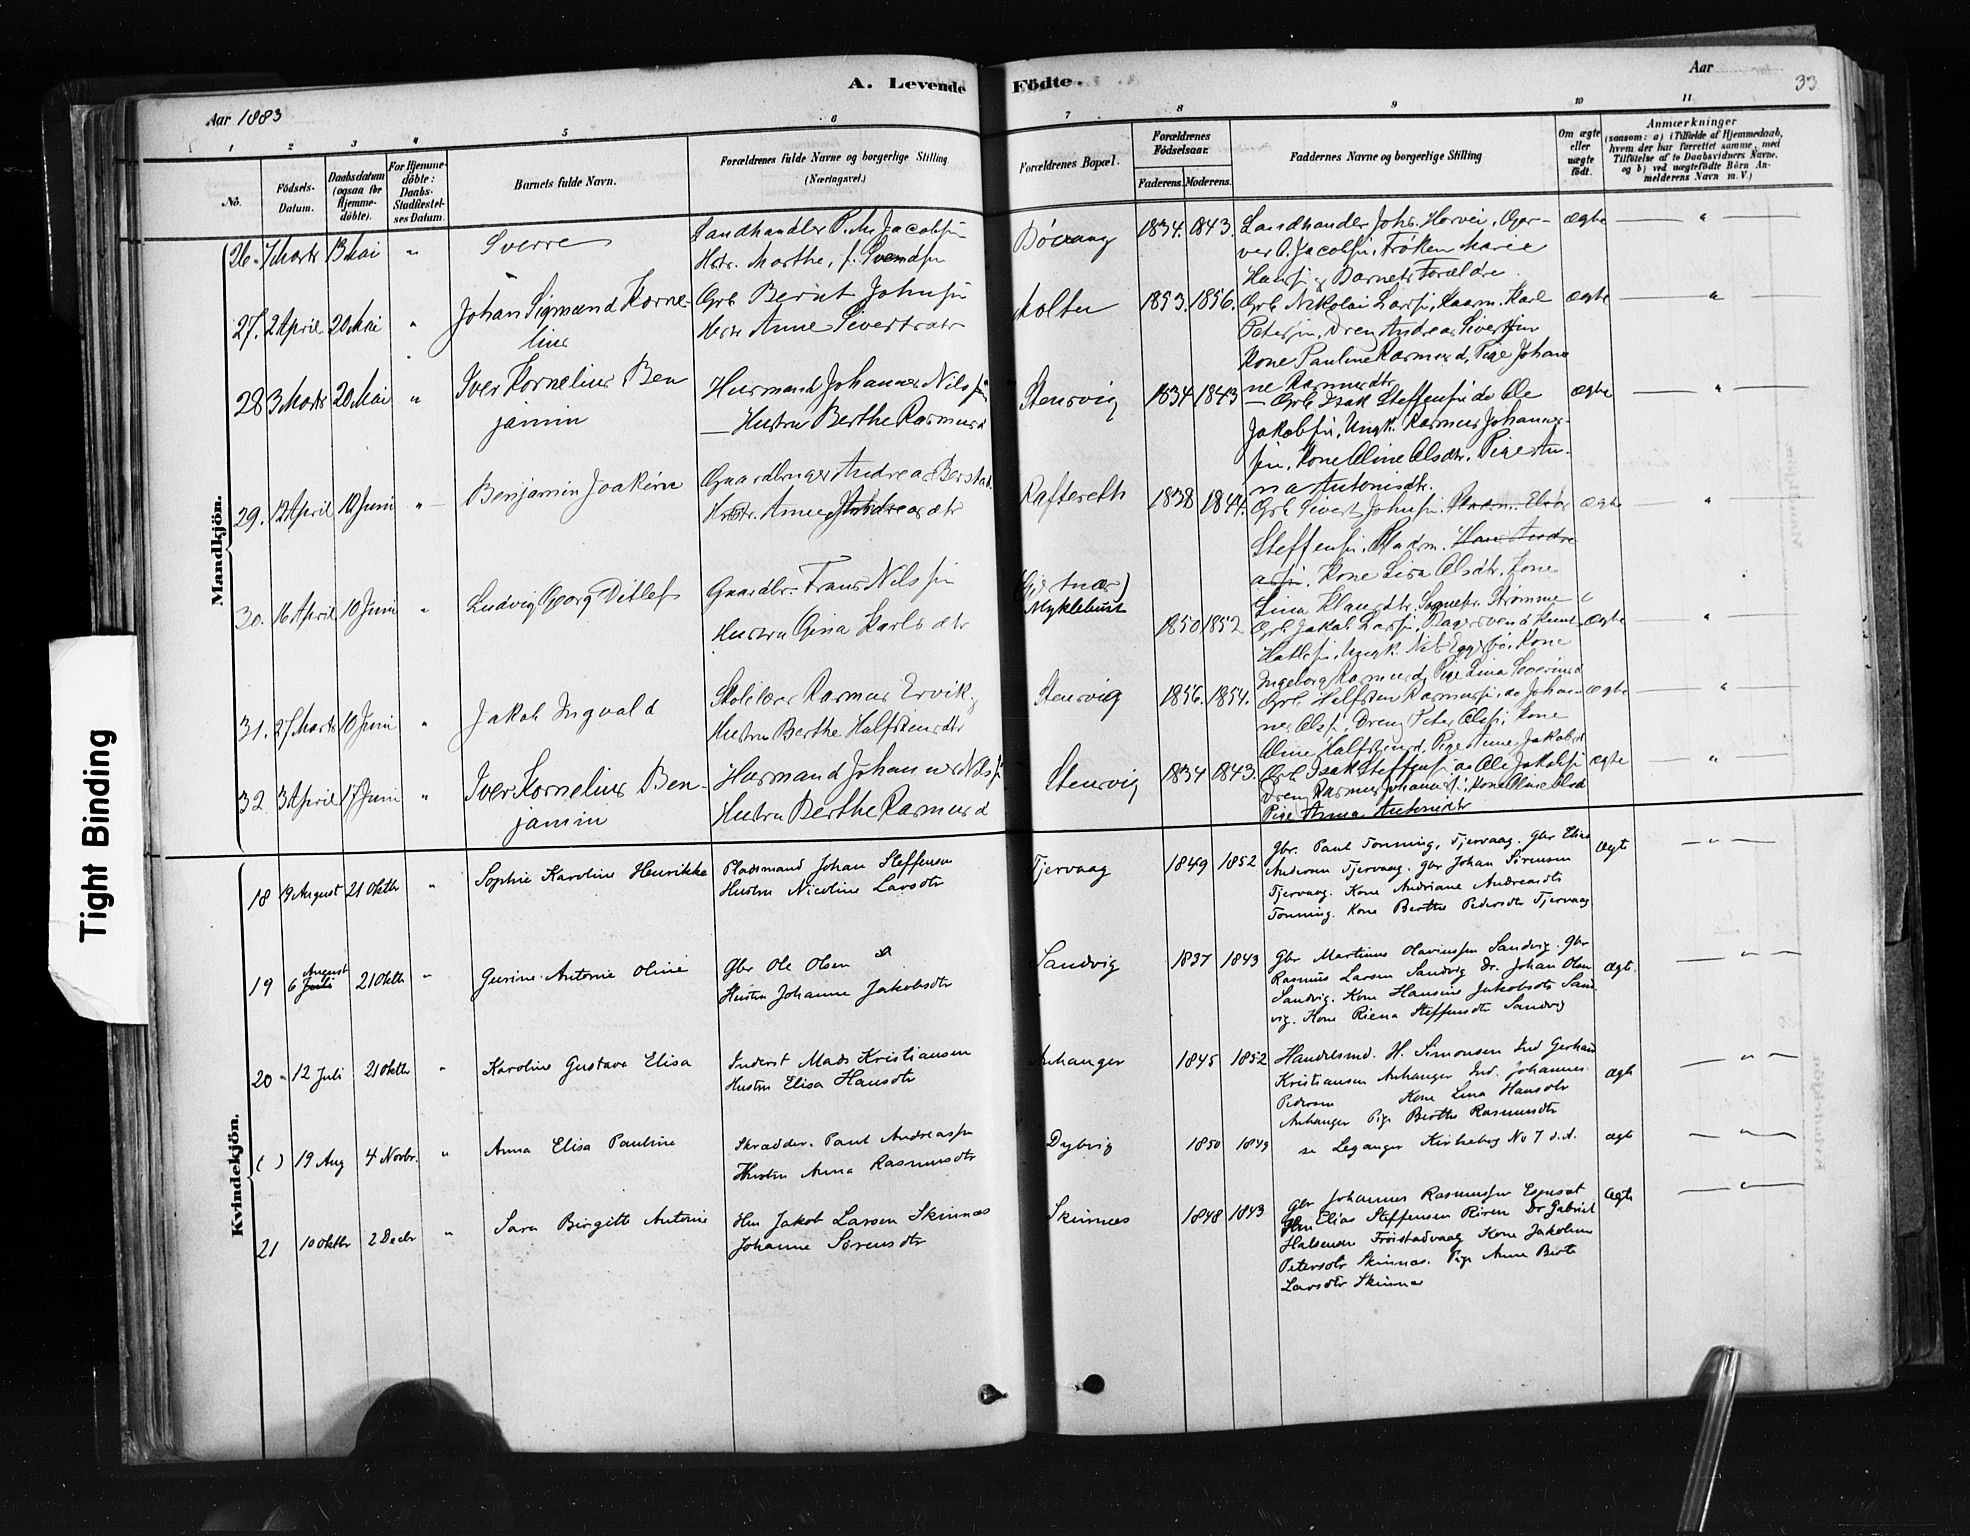 A. Levende Födte.
Aar 1883
Aar
33
1 2 3 4 5 6 7 8 9 10 11
No.
Födsels-Datum.
Daabsdatum (ogsaa for Hjemme-döbte).
For Hjemme-döbte: Daabs-Stadfæstel-ses Datum.
Barnets fulde Navn.
Forældrenes fulde Navne og borgerlige Stilling (Næringsvei.)
Forældrenes Bopæl.
Forældrenes Födselsaar.
Faderens. Moderens.
Faddernes Navne og borgerlige Stilling
Om ægte eller uægte födt.
Anmærkninger
(saasom: a) i Tilfælde af Hjemmedaab, hvem der har forrettet samme, med Tilföielse af to Daabsvidners Navne. og b) ved uægtefödte Börn Anmelderens Navn m. V.)
Mandkjön.
26. 7 Marts 13 Mai " Sverre
Landhandler P. M. Jacobsen
Hstr. Marthe, f. Svendsen
1834. 1843.
Landhandler Johs. Horvei,
O. Jacobsen, Frøken Marie
Hansen og Barnets Forældre.
ægte "
27. 2 April 20 Mai " Johan Sigmund Korne-
lius
Grb Bernt Johnsen
Hstr Anne Sivertsdtr
Moltu 1853. 1856.
Grb Nikolai Larsen, Karl
Petersen, Dreng Andreas Sivertsen
Kone Pauline Rasmusd, Pige Johan
ne Rasmusdtr
ægte "
28 3 Marts 20 Mai " Iver Kornelius Ben
jamin
Husmand Johannes Nilssen
— Hustru Berthe Rasmusd
Stensvig 1834 1843
— Grb Isak Steffensen do Ole
Jakobsen, Ungk. Rasmus Johannes-
sen, Kone Oline Olsdtr. Pige An-
na Antonisdtr.
ægte "
29. 12 April 10 Juni " Benjamin Joakim
Gaardbruger Andreas
Hstr. Anne
Rafteseth 1838 1844.
Grb Sivert Johnsen,
Steffensen, Pladsm. Hans Andre
assen, Kone Lisa Olsdtr. Kone
Lina Klausdtr. Sognepr. Strømme
ægte "
30. 16 April 10 Juni " Ludvig Georg Ditlef
Gaardbr. Frans Nilssen
Hustru Gina Karlsdtr
Myklebust
1850 1852
Grb Jakob Larsen,
Ungk. Nils Eggesbø, Kone
Ingeborg Rasmusd, Pige Lina Severinsd
ægte "
31. 27 Marts 10 Juni " Jakob Ingvald
Skolelærer Rasmus Ervik
Hustru Berthe Halfstensdtr
Stensvig 1856. 1854.
Grb. Halfsten Rasmussen, do Johan-
nes Olsen, Dreng Peter Olsen, Kone
Oline Halfstensd, Pige Anne Jakobsd
ægte "
32. 3 April 17 Juni " Iver Kornelius Ben-
jamin
Husmand Johannes Nilssen
Hustru Berthe Rasmusd
Stensvig 1834 1843.
Grb. Isak Steffensen do Ole Jakobsen
Dreng Rasmus Johannessen, Kone Oline Olsd
Pige Anna Antonisdtr
ægte "
Kvindekjön.
18 19 August 21 Oktbr " Sophie Karoline Henrikke
Pladsmand Johan Steffensen
Hustru Nicoline Larsdtr
Tjervaag 1849 1852
Gbr. Paul Tonning, Tjervaag. Gbr Elias
Andersen Tjervaag. Gbr Johan Sørensen
Tjervaag. Kone Andriane Andreasdtr
Tonning. Kone Berthe Pedersdtr Tjervaag
ægte "
19 6 August Juli 21 Oktbr " Gurine Antonie Oline
Gbr Ole Olsen
Hustru Johanne Jakobsdtr
Sandvig 1837 1843
Gbr Martinus Olavinssen Sandvig. Gbr
Rasmus Larsen Sandvig Dr. Johan Olsen
Sandvig. Kone Hansine Jakobsdtr Sand-
vig. Kone Riena Steffensdtr Sandvig
ægte. "
20 12 Juli 21 Oktbr " Karoline Gustava Elisa
Inderst Mads Kristiansen
Hustru Elisa Hansdtr
Anhanger 1845 1852
Handelsmd. H. Simonsen Ind Gerhard
Kristiansen Anhanger Ind. Johannes
Pedersen Kone Lina Hansdtr
Anhanger Pige Berthe Rasmusdtr
ægte "
( ) 19 Aug 4 Novbr. " Anna Elisa Pauline
Skrædder. Paul Andreassen
Hustru Anna Rasmusdtr
Dybvig 1850 1849
se Leganger Kirkebog No 7 d. A.
ægte "
21 10 Oktbr 2 Decbr " Sara Birgitte Antonie
Hm Jakob Larsen Skinnæs
Johanne Sørensdtr
Skinnæs 1848 1843
Gbr Johannes Rasmussen Espesæt
Hm Elias Steffensen Riren Dr Gabriel
Halsensen Frøistadvaag Kone Jakobine
Petersdtr Skinnæs. Pige Anne Birte
Larsdtr Skinnæs
ægte "
Tight Binding